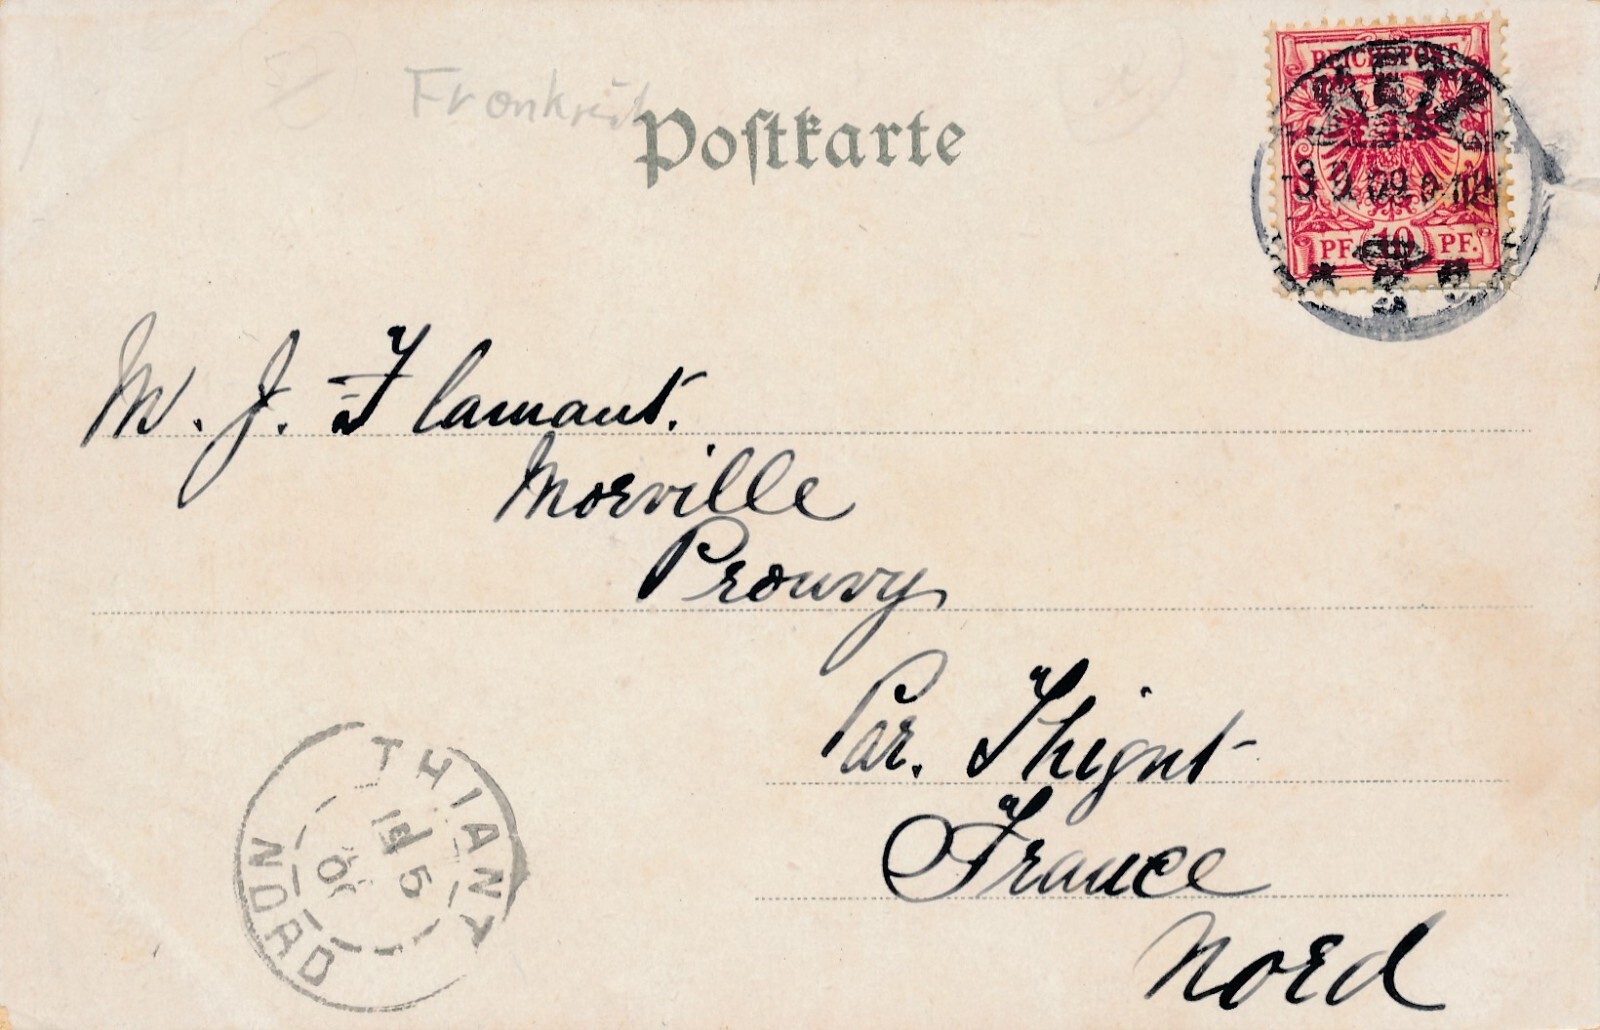 Frankreich
Postkarte
REICHSPOST
METZ
PF. 10 PF.
M. J. Flamant.
Morville
Prouvy
Par. Thignt
France
Nord
THIANT
NORD